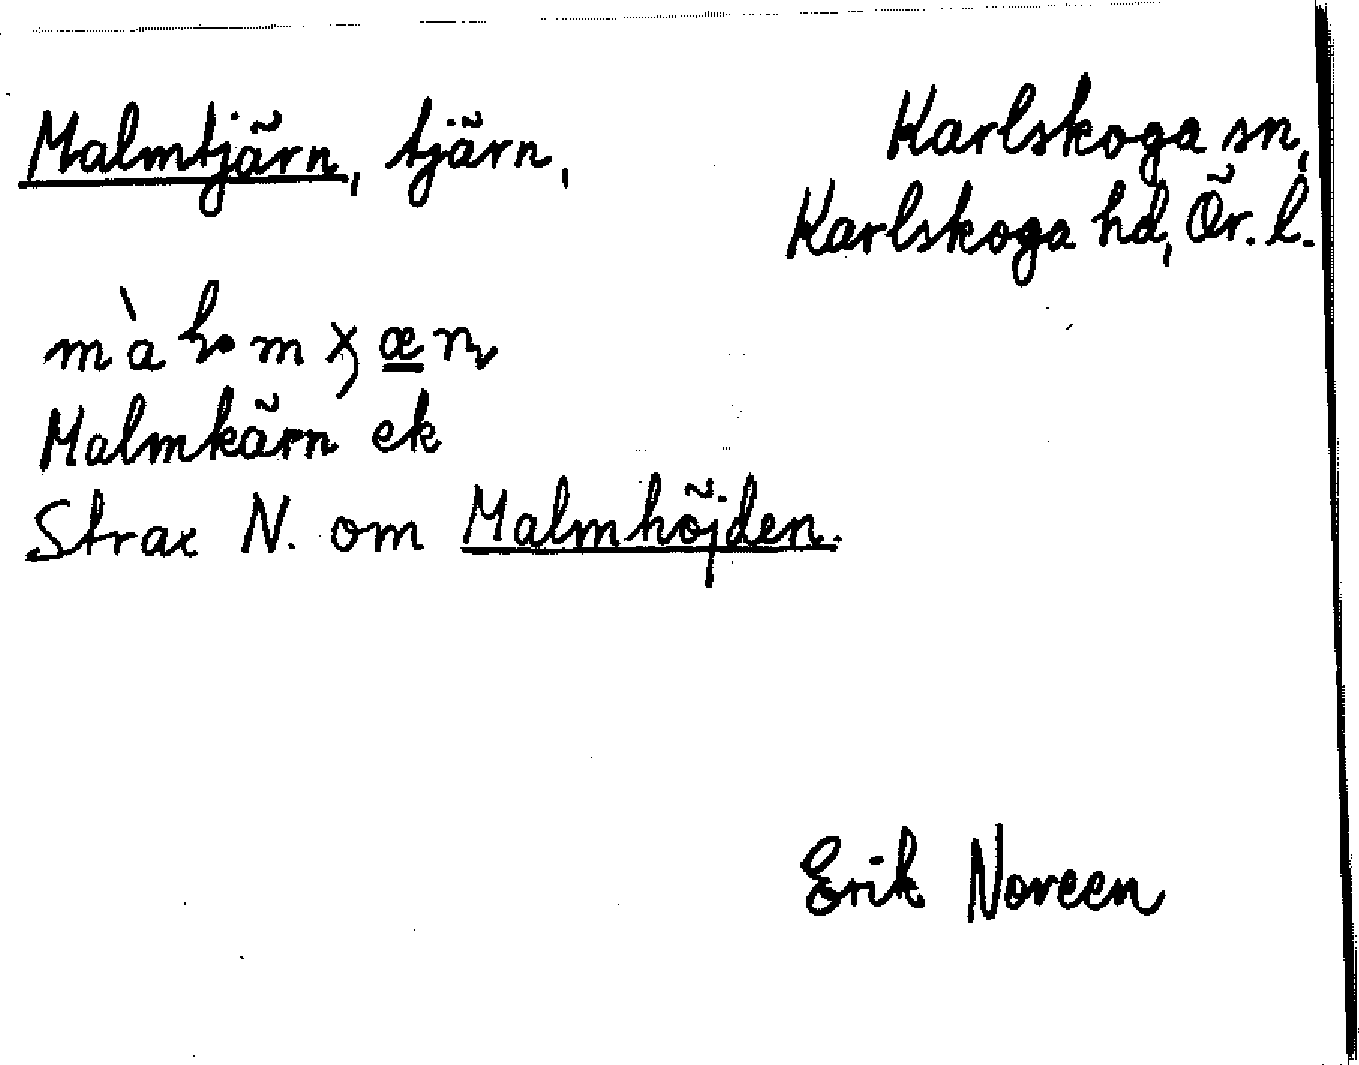 Malmtjärn, tjärn,
Karlskoga sn,
Karlskoga hd, Ör. l.
Malmkärn ek
Strax N. om Malmhöjden.
Erik Noreen